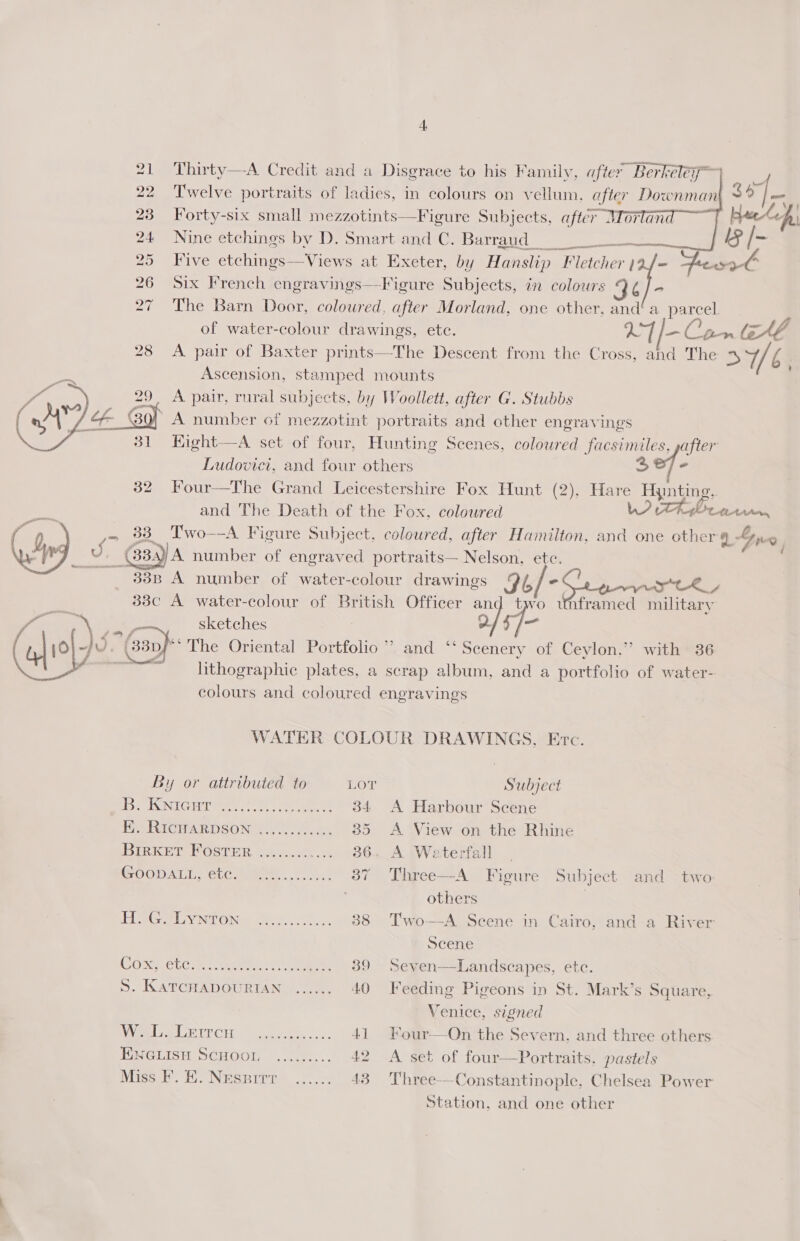 4
21 Thirty—A Credit and a Disgrace to his Family, after Berkeley
22 Twelve portraits of ladies, in colours on vellum, after Downman
23 Forty-six small mezzotints—Figure Subjects, after Morland
24 Nine etchings by D. Smart and C. Barraud
25 Five etchings—Views at Exeter, by Hanslip Fletcher 12/-
26 Six French engravings—Figure Subjects, in colours
27 The Barn Door, coloured, after Morland, one other, and a parcel
of water-colour drawings, etc.
28 A pair of Baxter prints—The Descent from the Cross, and The
Ascension, stamped mounts
29 A pair, rural subjects, by Woollett, after G. Stubbs
30 A number of mezzotint portraits and other engravings
31 Eight—A set of four, Hunting Scenes, coloured facsimiles, after
Ludovici, and four others
32 Four—The Grand Leicestershire Fox Hunt (2), Hare Hunting,
and The Death of the Fox, coloured
33 Two—A Figure Subject, coloured, after Hamilton, and one other
33A A number of engraved portraits—Nelson, etc.
33B A number of water-colour drawings
33C A water-colour of British Officer and two unframed military
sketches
33D “The Oriental Portfolio” and “Scenery of Ceylon,” with 36
lithographic plates, a scrap album, and a portfolio of water-
colours and coloured engravings
WATER COLOUR DRAWINGS, Etc.
By or attributed to LOT Subject
B. KNIGHT ............... 34 A Harbour Scene
E. RICHARDSON ............ 35 A View on the Rhine
BIRKET FOSTER ............ 36 A Waterfall
GOODALL, etc. ............ 37 Three—A Figure Subject and two
others
H. G. LYNTON ............ 38 Two—A Scene in Cairo, and a River
Scene
COX, etc. .................. 39 Seven—Landscapes, etc.
S. KATCHADOURIAN ...... 40 Feeding Pigeons in St. Mark’s Square,
Venice, signed
W. L. LEITCH ............ 41 Four—On the Severn, and three others
ENGLISH SCHOOL ......... 42 A set of four—Portraits, pastels
Miss F. E. NESBITT ...... 43 Three—Constantinople, Chelsea Power
Station, and one other